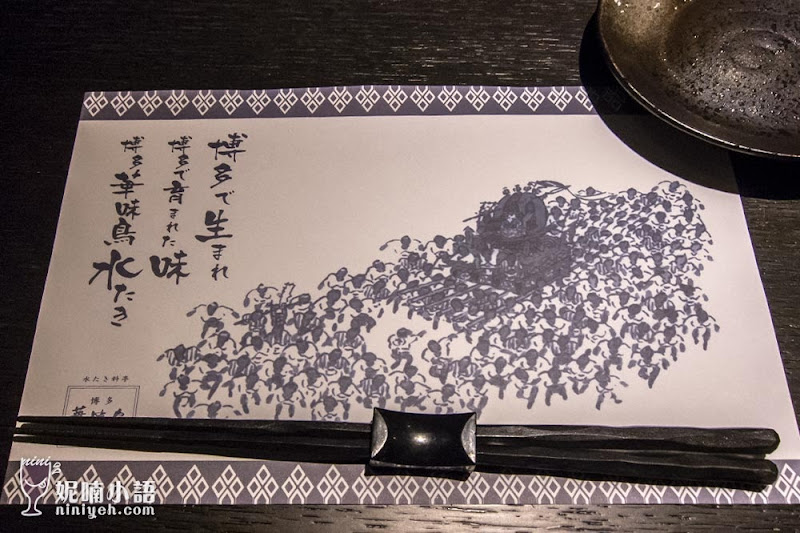 博多で生まれ
博多で育まれた味
博多華味鳥水たき
水たき料亭
博多
nini
妮喃小語
niniyeh.com